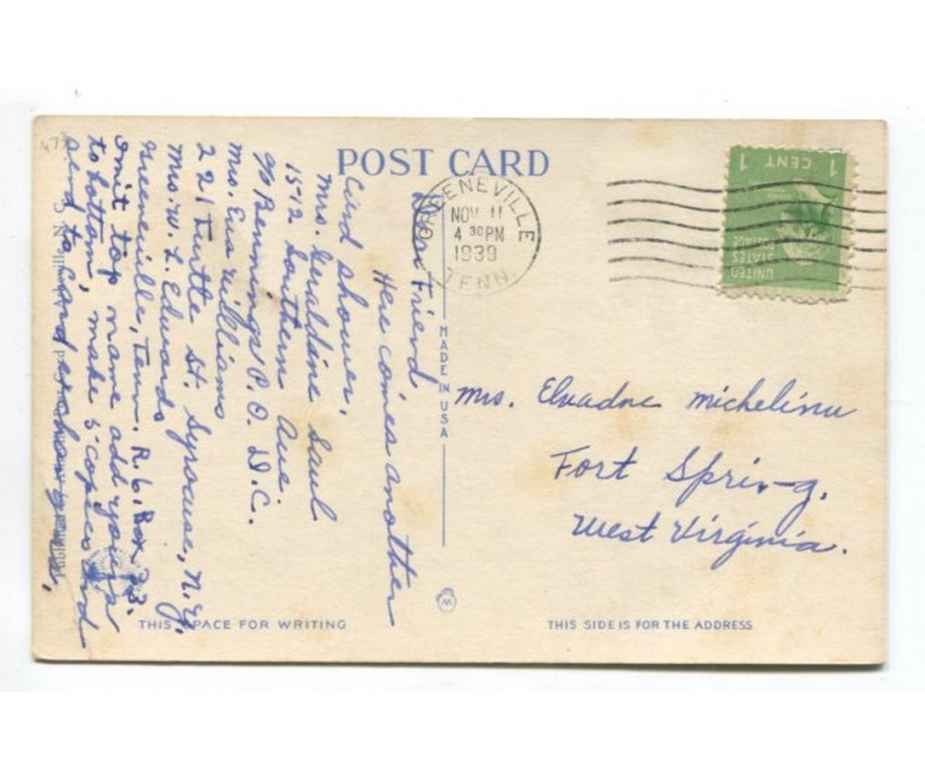 POST CARD
GREENEVILLE
NOV 11
4 30 PM
1939
TENN.
1 CENT 1
UNITED
STATES
Dear Friend
Here comes another
Card shower.
Mrs. Geraldine Saul
1512 Eastern Ave.
% Bennings P.O. D.C.
Mrs. Eva Williams
221 Tuttle St. Syracuse, N.Y.
Mrs. W. L. Edwards
Greeneville, Tenn. R. 6. Box 33.
Omit top name add yours
to bottom, make 5 copies and
send to Card exchangers.
MADE IN USA
Mrs. Elvadne Michelinu
Fort Spring.
West Virginia.
THIS SPACE FOR WRITING
THIS SIDE IS FOR THE ADDRESS